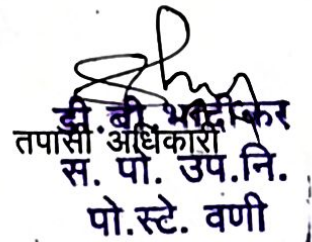 डी. बी. भादीकर
तपासी अधिकारी
स. पो. उप.नि.
पो.स्टे. वणी